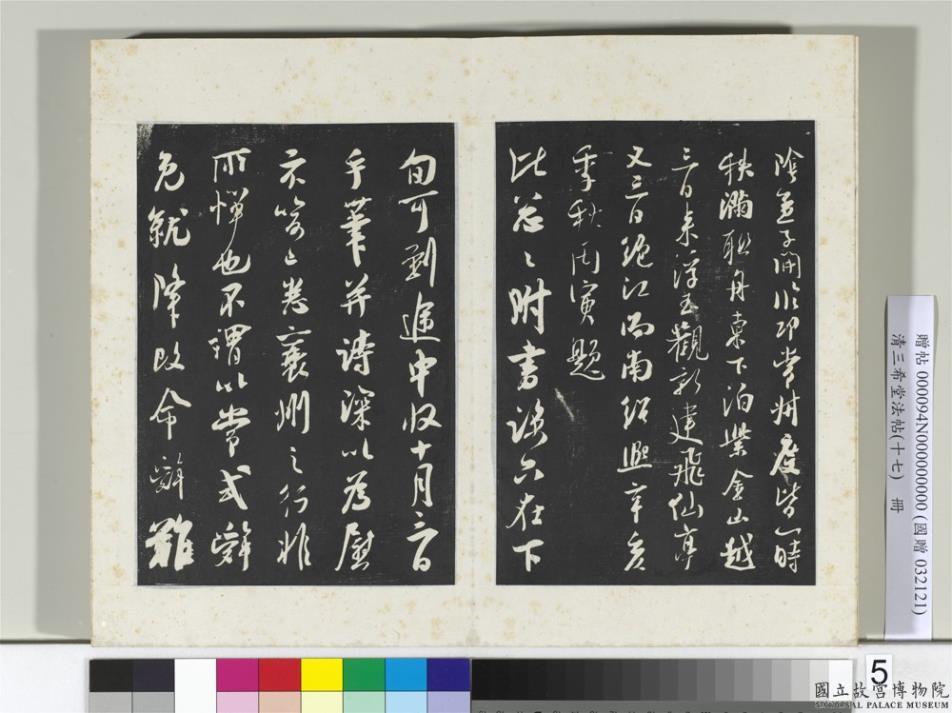 陰孟子開作邛常州度皆一時
秩滿聯舟東下泊柴金山越
三日來浮玉觀新建飛仙亭
又三日絕江而南紹興辛亥
季秋丙寅題
比忽忽附書後六在下
旬可到途中收十月二日
手筆并詩深以為慰
示答已悉襄州之行非
所憚也不謂以常式辭
免就降改命辭難
贈帖 000094N000000000 (國贈 032121)
清三希堂法帖(十七) 冊
5
國立故宮博物院
NATIONAL PALACE MUSEUM